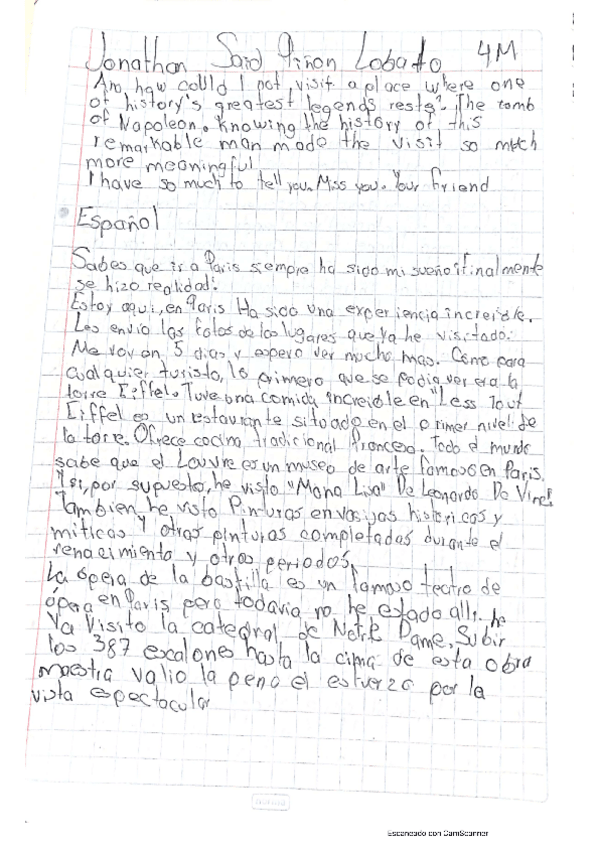 Jonathan Said Piñon Lobato 4M
An, how could I not, visit a place where one
of history's greatest legends rests? The tomb
of Napoleon. Knowing the history of this
remarkable man made the visit so much
more meaningful
I have so much to tell you. Miss you. Your friend
Español
Sabes que ir a Paris siempre ha sido mi sueño! finalmente
se hizo realidad!
Estoy aqui, en Paris Ha sido una experiencia increible.
Les envio las fotos de los lugares que ya he visitado.
Me voy en 5 dias y espero ver mucho mas. Como para
cualquier turista, lo primero que se podia ver era la
torre Eiffel. Tuve una comida increible en "Less Tout
Eiffel es un restaurante situado en el primer nivel de
la torre. Ofrece cocina tradicional francesa. Todo el mundo
sabe que el Louvre es un museo de arte famoso en Paris.
Y si, por supuesto, he visto "Mona Lisa" De Leonardo De Vinci
Tambien he visto Pinturas en vasijas historicos y
miticas Y otras pinturas completadas durante el
renacimiento y otros periodos,
La ópera de la bastilla es un famoso teatro de
ópera en Paris pero todavia no he estado alli. he
Ya Visito la catedral de Dame, Subir
los 387 escalones hasta la cima de esta obra
maestra valio la pena el esfuerzo por la
vista espectacular
Escaneado con CamScanner